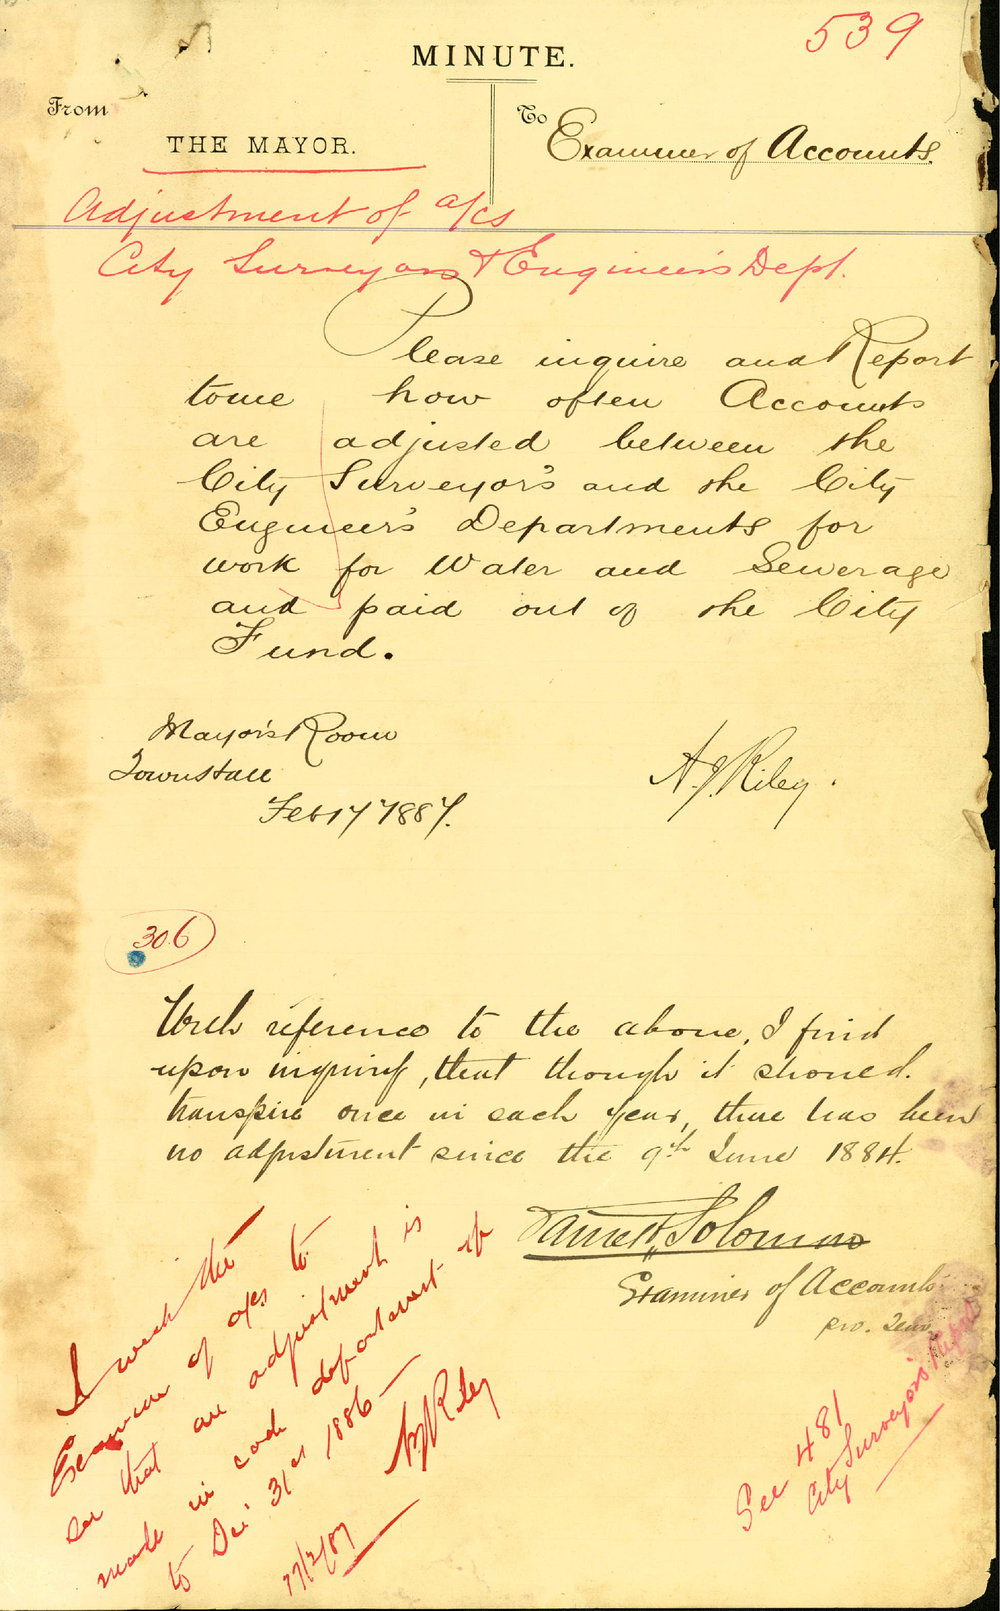 539
MINUTE.
From
THE MAYOR.
To
Examiner of Accounts.
Adjustment of a/cs
City Surveyors & Engineer's Dept.
Please inquire and Report
to me how often Accounts
are adjusted between the
City Surveyor's and the City
Engineer's Departments for
work for Water and Sewerage
and paid out of the City
Fund.
Mayor's Room
Townhall
Feb 17 1887.
A.J. Riley.
306
With reference to the above, I find
upon inquiry, that though it should
transpire once in each year, there has been
no adjustment since the 9th June 1884.
James H. Solomon
Examiner of Accounts
pro. Tem
I wish the
Examiner of a/cs to
see that an adjustment is
made in each department up
to Dec 31st 1886 —
AJ Riley
17/2/87
See 481
City Surveyor's Report